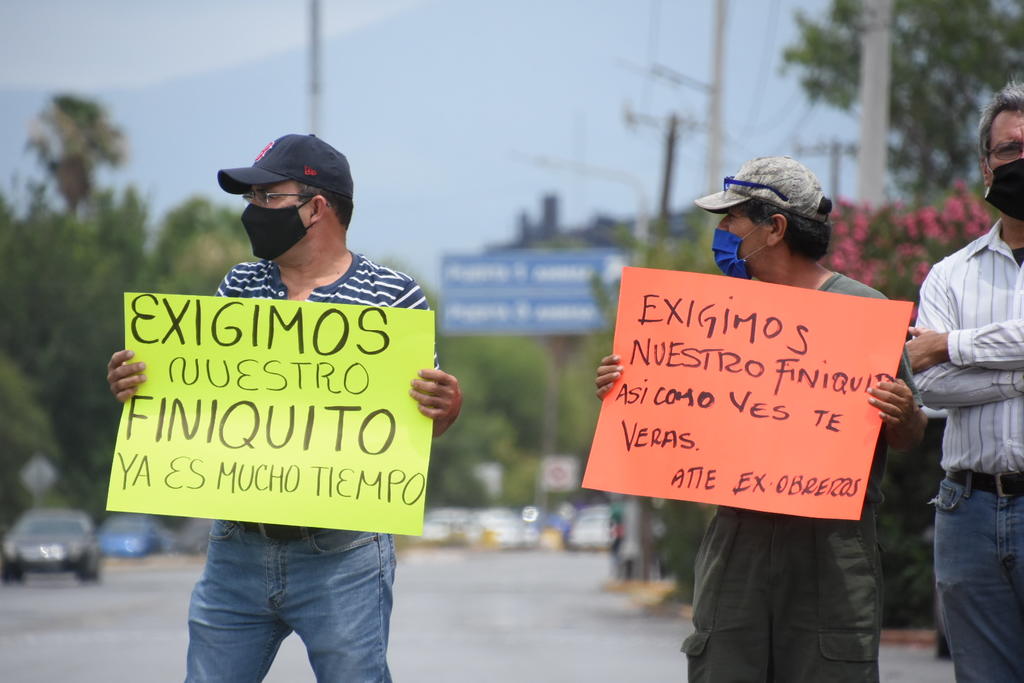 EXIGIMOS
NUESTRO
FINIQUITO
YA ES MUCHO TIEMPO
EXIGIMOS
NUESTRO FINIQUITO
ASI COMO VES TE
VERAS.
ATTE EX-OBREROS